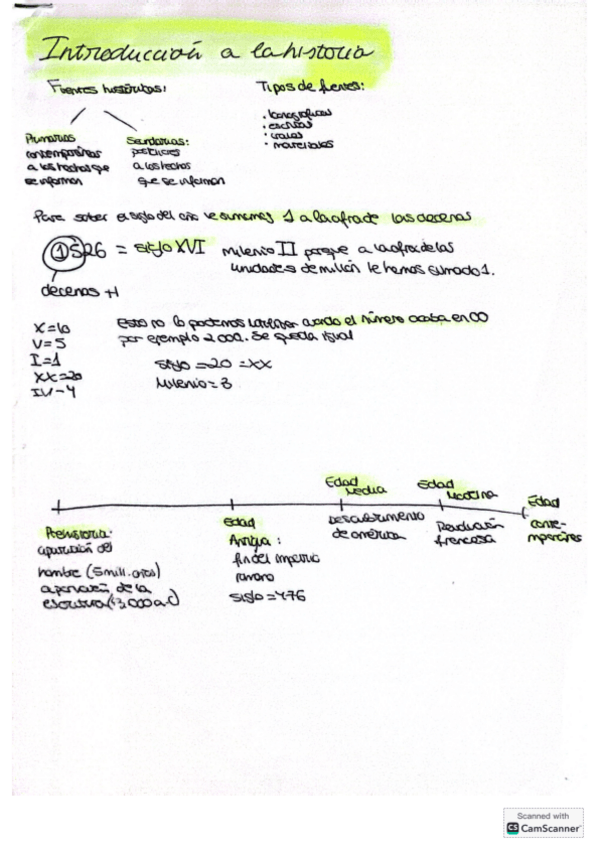 Introducción a la historia
Fuentes históricas:
Primarias
contemporáneas
a los hechos que
se informan
Secundarias:
posteriores
a los hechos
que se informan
Tipos de fuentes:
• Iconográficas
• escritas
• orales
• materiales
Para saber el siglo del año le sumamos 1 a la cifra de las decenas
1526 = siglo XVI
decenas +1
Milenio II porque a la cifra de las
unidades de millón le hemos sumado 1.
X=10
V=5
I=1
XX=20
IV-4
Esto no lo podemos hacer cuando el número acaba en 00
por ejemplo 2000. Se queda igual
siglo =20 =XX
Milenio=3
Prehistoria:
aparición del
hombre (5 mill. años)
aparición de la
escritura (3,000 a.C)
Edad
Antigua:
fin del imperio
romano
siglo =476
Edad
Media
Descubrimiento
de américa
Edad
Moderna
Revolución
francesa
Edad
conte-